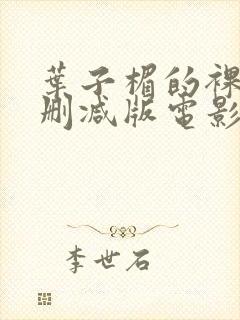 葉子楣的裸
刪減版電影
李世石